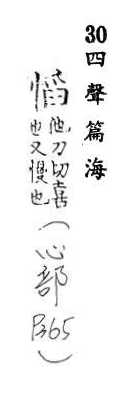 30四聲篇海
慆他刀切喜也又慢也(心部P.365)